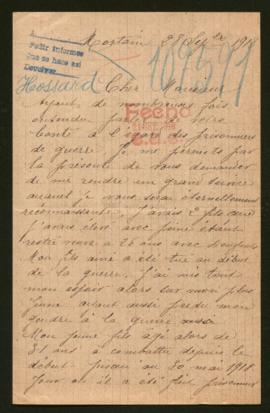 Mortain 22 Sep 1918
Pedir informes
que se hace así
Devolver
109491
Hossard
Cher Monsieur
Ayant de nombreuses fois
entendu parler de votre
bonté à l'égard des prisonniers
de guerre je me permets par
la présente de vous demander
de me rendre un grand service
auquel je vous serai éternellement
reconnaissante. J'avais 2 fils que
j'avais élevé avec peine étant
restée veuve à 26 ans avec
Mon fils ainé a été tué au début
de la guerre. J'ai mis tout
mon espoir alors sur mon plus
jeune ayant aussi perdu mon
gendre à la guerre aussi
Mon jeune fils âgé alors de
21 ans a combattu depuis le
début jusqu'au 30 mai 1918
jour où il a été fait prisonnier
Fecho